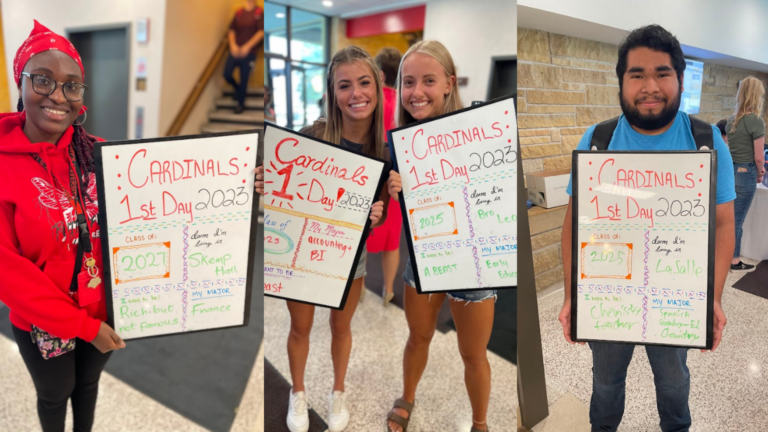 CARDINALS
1st DAY 2023
CLASS OF:
2027
dorm I'm
living in
Skemp
Hall
I want to be:
Rich but
not famous
MY MAJOR
Finance
CARDINALS
1st DAY! 2023
class of
My Major
accounting +
BI
CARDINALS
1st DAY 2023
CLASS OF:
2025
dorm I'm
living in
A BEAST
MY MAJOR
CARDINALS
1st DAY 2023
CLASS OF:
2025
dorm I'm
living in
LaSalle
I want to be:
Chemistry
teacher
MY MAJOR
Spanish
Chemistry